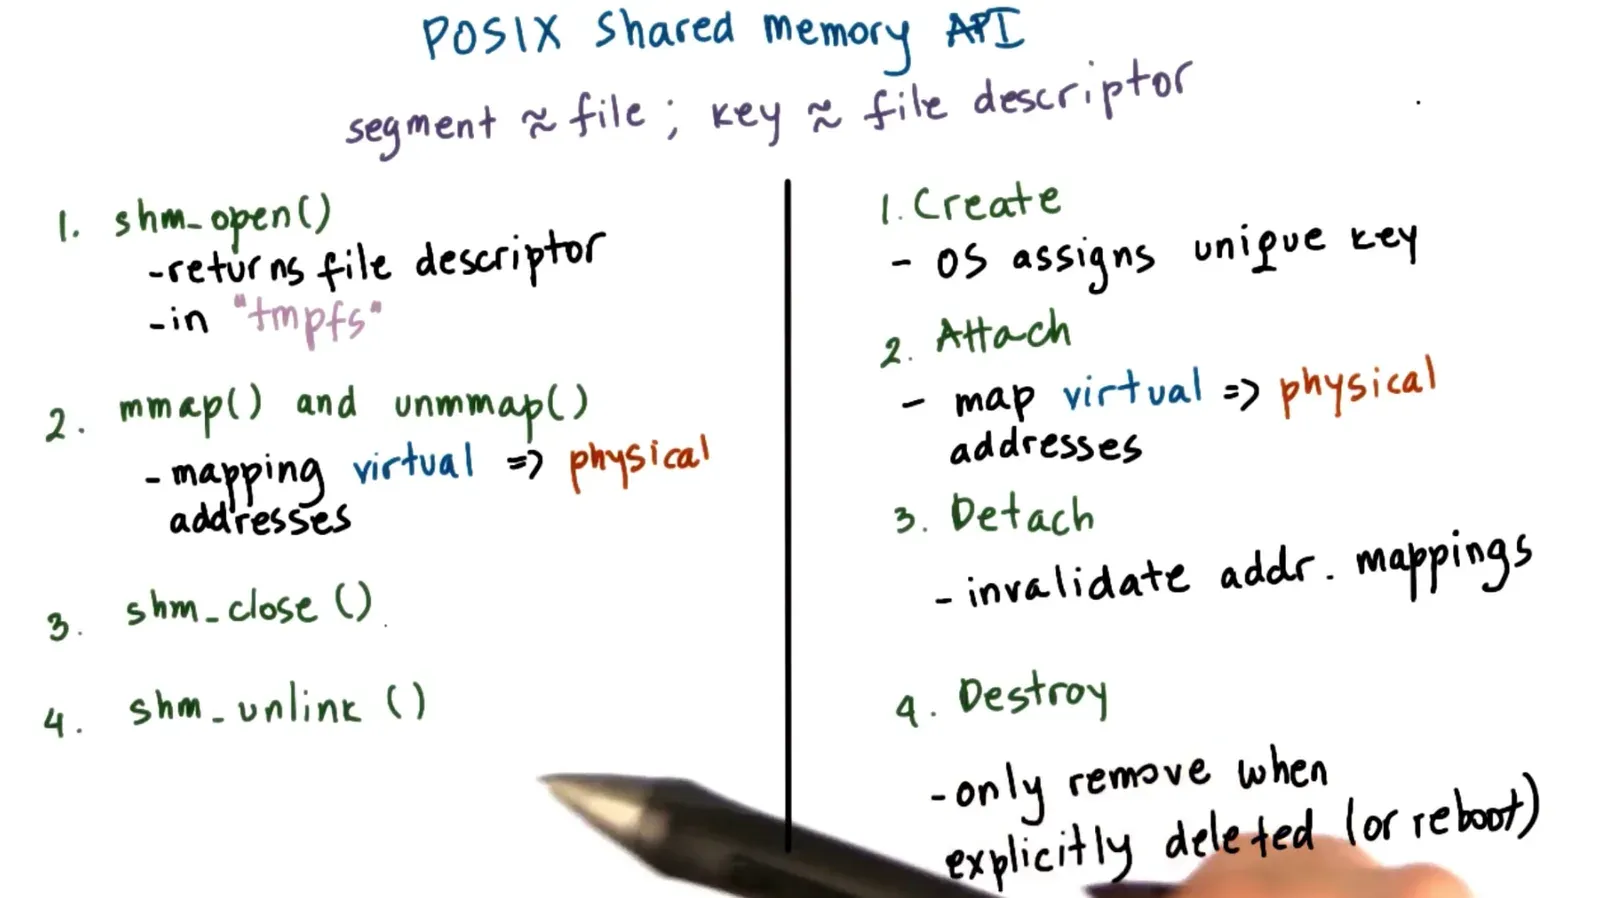 POSIX Shared Memory API
segment ≈ file ; key ≈ file descriptor
1. shm_open()
-returns file descriptor
-in "tmpfs"
2. mmap() and unmmap()
-mapping virtual => physical
addresses
3. shm_close()
4. shm_unlink ()
1. Create
- OS assigns unique key
2. Attach
- map virtual => physical
addresses
3. Detach
- invalidate addr. mappings
4. Destroy
-only remove when
explicitly deleted (or reboot)